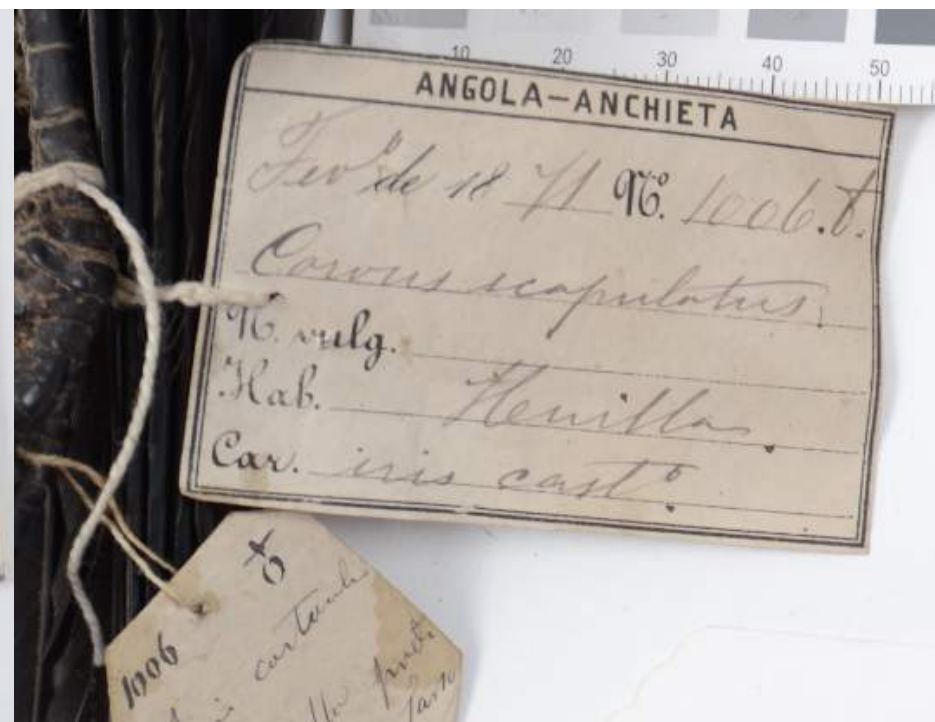 10 20 30 40 50
ANGOLA—ANCHIETA
Fev.º de 1871 Nº. 1006. ♂.
Corvus scapulatus.
N. vulg.
Hab. Huilla
Car. iris cast.º
♂
1006
iris castanho